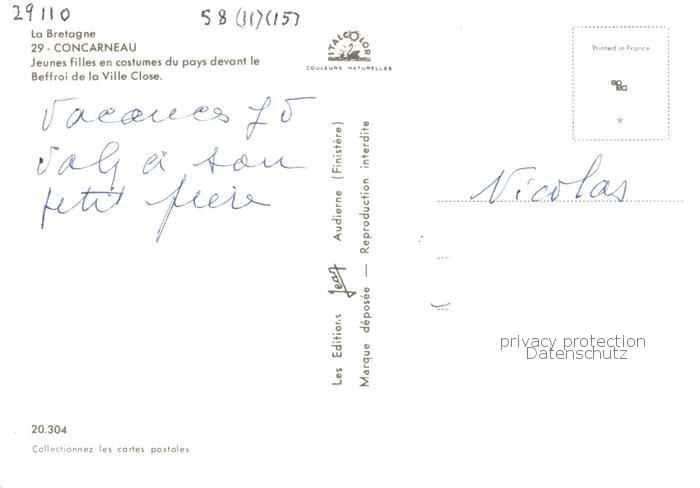 29110
S8 (11)(15)
La Bretagne
29 - CONCARNEAU
Jeunes filles en costumes du pays devant le
Beffroi de la Ville Close.
ITALCOLOR
COULEURS NATURELLES
Printed in France
*
Vacances 75
à son
petit frère
Nicolas
Les Editions Jean Audierne (Finistère)
Marque déposée — Reproduction interdite
privacy protection
Datenschutz
20.304
Collectionnez les cartes postales